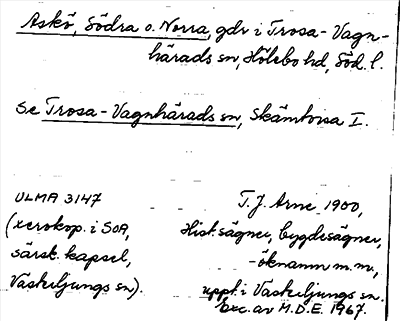 Askö, Södra o. Norra, gdr i Trosa-Vagn-
härads sn, Hölebo hd, Söd. l.
Se Trosa-Vagnhärads sn, Skämtvisa I.
ULMA 3147
(xerokop. i SOA,
särsk. kapsel,
Västerljungs sn).
T. J. Arne 1900,
Hist. sägner, bygdesägner,
-öknamn m.m.,
uppt. i Västerljungs sn.
Exc. av M.D.E. 1967.